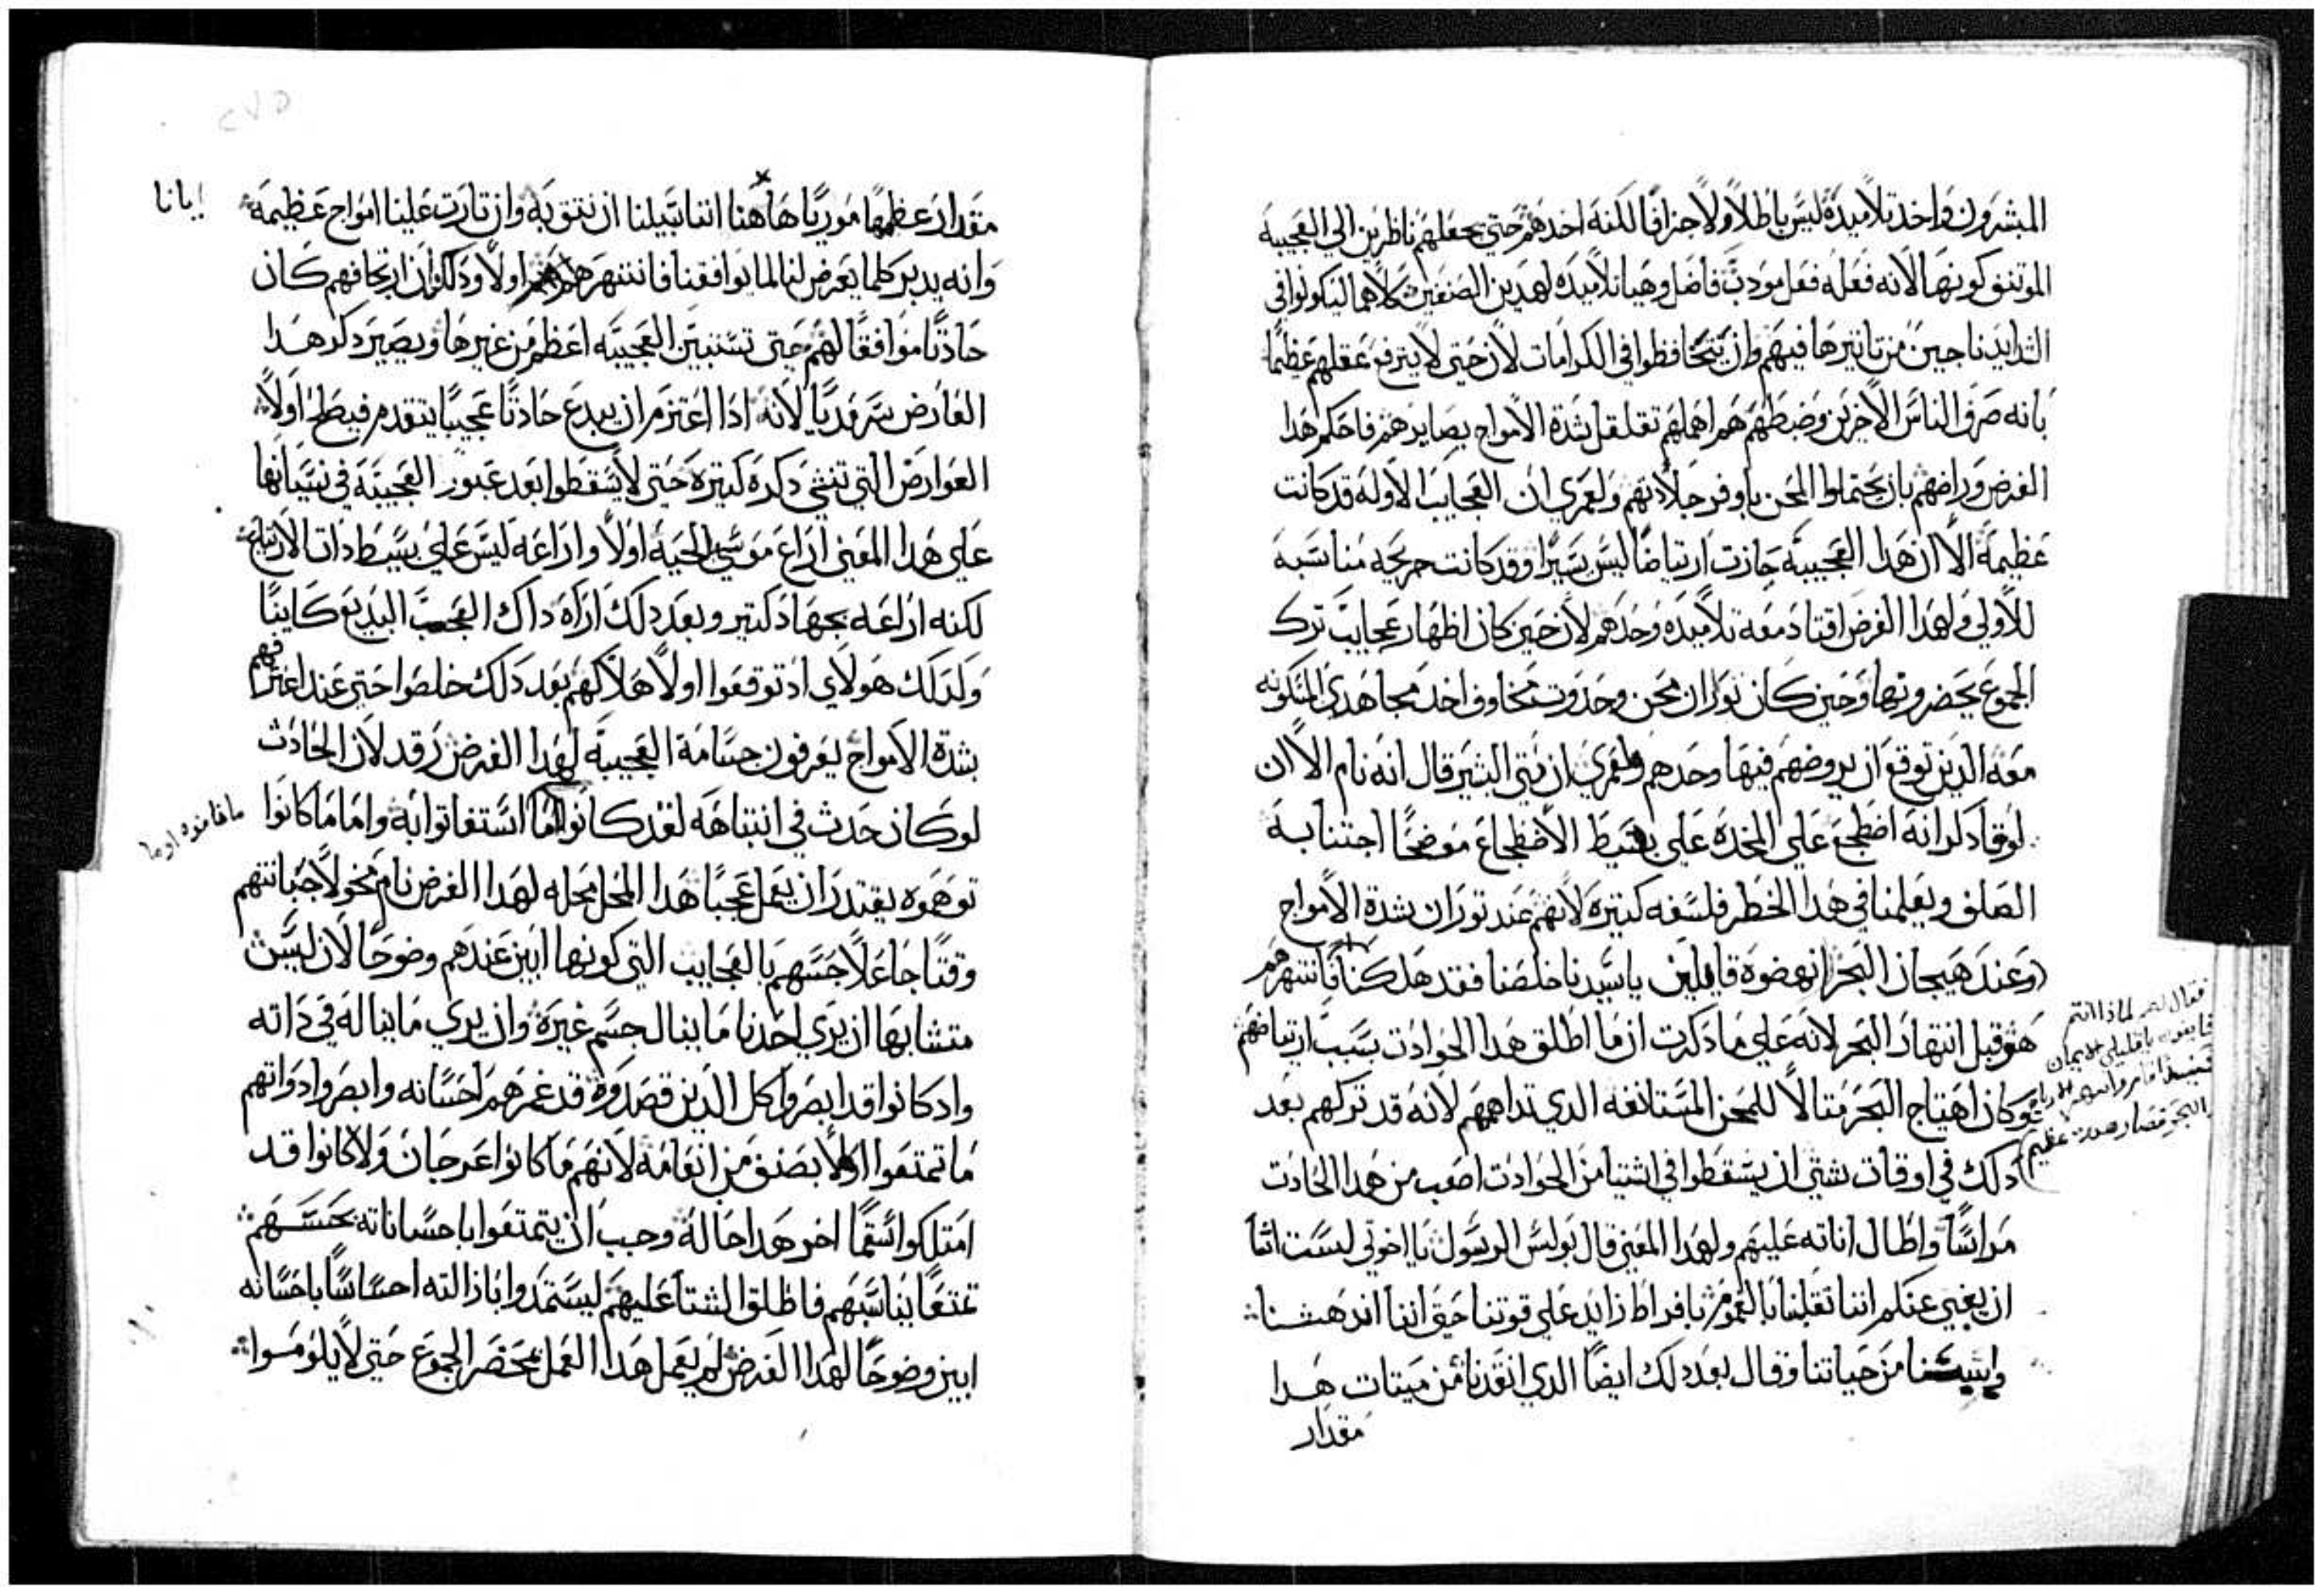 المبشرون واخد تلاميده ليس باطلاً ولا جزافًا لكنه اخدهم حتي يجعلهم ناظرين الي العجيبه
الموتنق كونها لانه فعله فعل مودب فاضل وهيا تلاميده لهدين الصنفين كلاهما ليكونوا في
الشدايد ناجين من تاتيرها فيهم وان يتحافظوا في الكرامات لان حتي لا يترفع عقلهم عظيمًا
بانه صرف الناس الاخرين وضبطهم هم اهملهم تقلقل بشدة الامواج بصايرهم فاحكم هدا
الغرض وراضهم بان يحتملوا المحن باوفر جلادتهم ولعمري ان العجايب الاوله قد كانت
عظيمه الا ان هدا العجيبه حازت ارتياضًا ليس يسيرًا وقد كانت حريجه مناسبه
للاولي ولهدا الغرض اقتاد معه تلاميده وحدهم لان حين كان اظهار عجايب ترك
الجموع يحضرونها وحين كان توران محن وحدوت مخاوف اخد مجاهدي المسكونه
معه الدين توقع ان يروضهم فيها وحدهم ولعمري ان متي البشير قال انه نام الا ان
لوقا دكر انه اضطجع علي المخده علي بسيط الاضطجاع موضحًا اجتنابه
الصلف ويعلمنا في هدا الخطر فلسفه كتيره لانهم عند توران شدة الامواج
وعند هيجان البحر انهضوه قايلين ياسيدنا خلصنا فقد هلكنا فانتهرهم
هو قبل انتهار البحر لانه علي ما دكرت ان ما اطلق هدا الحوادت بسبب ارتياضهم
وكان اهتياج البحر متالاً للمحن المستانفه الدي تداهمهم لانه قد تركهم بعد
دلك في اوقات شتي ان يسقطوا في اشتيا من الحوادت اصعب من هدا الحادت
مراسًا واطال اناته عليهم ولهدا المعني قال بولس الرسول يا اخوتي لست اشا
ان يغبي عنكم اننا تقلبنا بالغموم بافراط زايد علي قوتنا حتي اننا اندهشنا
وايسنا من حياتنا وقال بعد دلك ايضًا الدي انقدنا من ميتات هدا
مقدار
فقال لهم لمادا انتم
خايفون يا قليلي الايمان
حينيد قام وانتهر الرياح
والبحر فصار هدوء عظيم
مقدار عظمها موريًا هاهنا اننا سبيلنا ان نتق به وان تارت علينا امواج عظيمه
ايانا
وانه يدبر كلما يعرض لنا لما يوافقنا فانتهرهم اولا ودلك ان ارتجافهم كان
حادتًا موافقًا لهم حتي تستبين العجيبه اعظم من غيرها ويصير دكر هدا
العارض سرمديًا لانه ادا اعتزم ان يبدع حادتًا عجيبًا يتقدم فيصلح اولاً
العوارض التي تنشي دكره كتيره حتي لا يسقطوا بعد عبور العجيبه في نسيانها
علي هدا المعني اراع موسي الحيه اولاً واراعه ليس علي بسيط دات الارتياع
لكنه اراعه بجهاد كتير وبعد دلك اراه داك العجب البديع كاينًا
ولدلك هولاي اد توقعوا اولا هلاكهم بعد دلك خلصوا حتي عند اعترافهم
بشدة الامواج يعرفون جسامة العجيبه لهدا الغرض رقد لان الحادث
لوكان حدث في انتباهه لقد كانوا اما استغاتوا به واما ما كانوا
ما خافوه او ما
توهموه يقتدر ان يعمل عجبًا هدا المحل محله لهدا الغرض نام مخولاً جبانتهم
وقتًا جاعلاً حسهم بالعجايب التي كونها ابين عندهم وضوحًا لان ليس
متشابهًا ان يري احدنا ما ينال جسم غيره وان يري ما يناله في داته
واد كانوا قد ابصروا كل الدين قصدوه قد غمرهم احسانه وابصروا دواتهم
ما تمتعوا ولا بصنف من انعامه لانهم ما كانوا عرجان ولا كانوا قد
امتلكوا سقمًا اخر هدا حاله وجب ان يتمتعوا باحساناته بحسهم
تمتعًا يناسبهم فاطلق الشتا عليهم ليستمدوا بازالته احساسًا باحسانه
ابين وضوحًا لهدا الغرض لم يعمل هدا العمل بمحضر الجموع حتي لا يلوموا